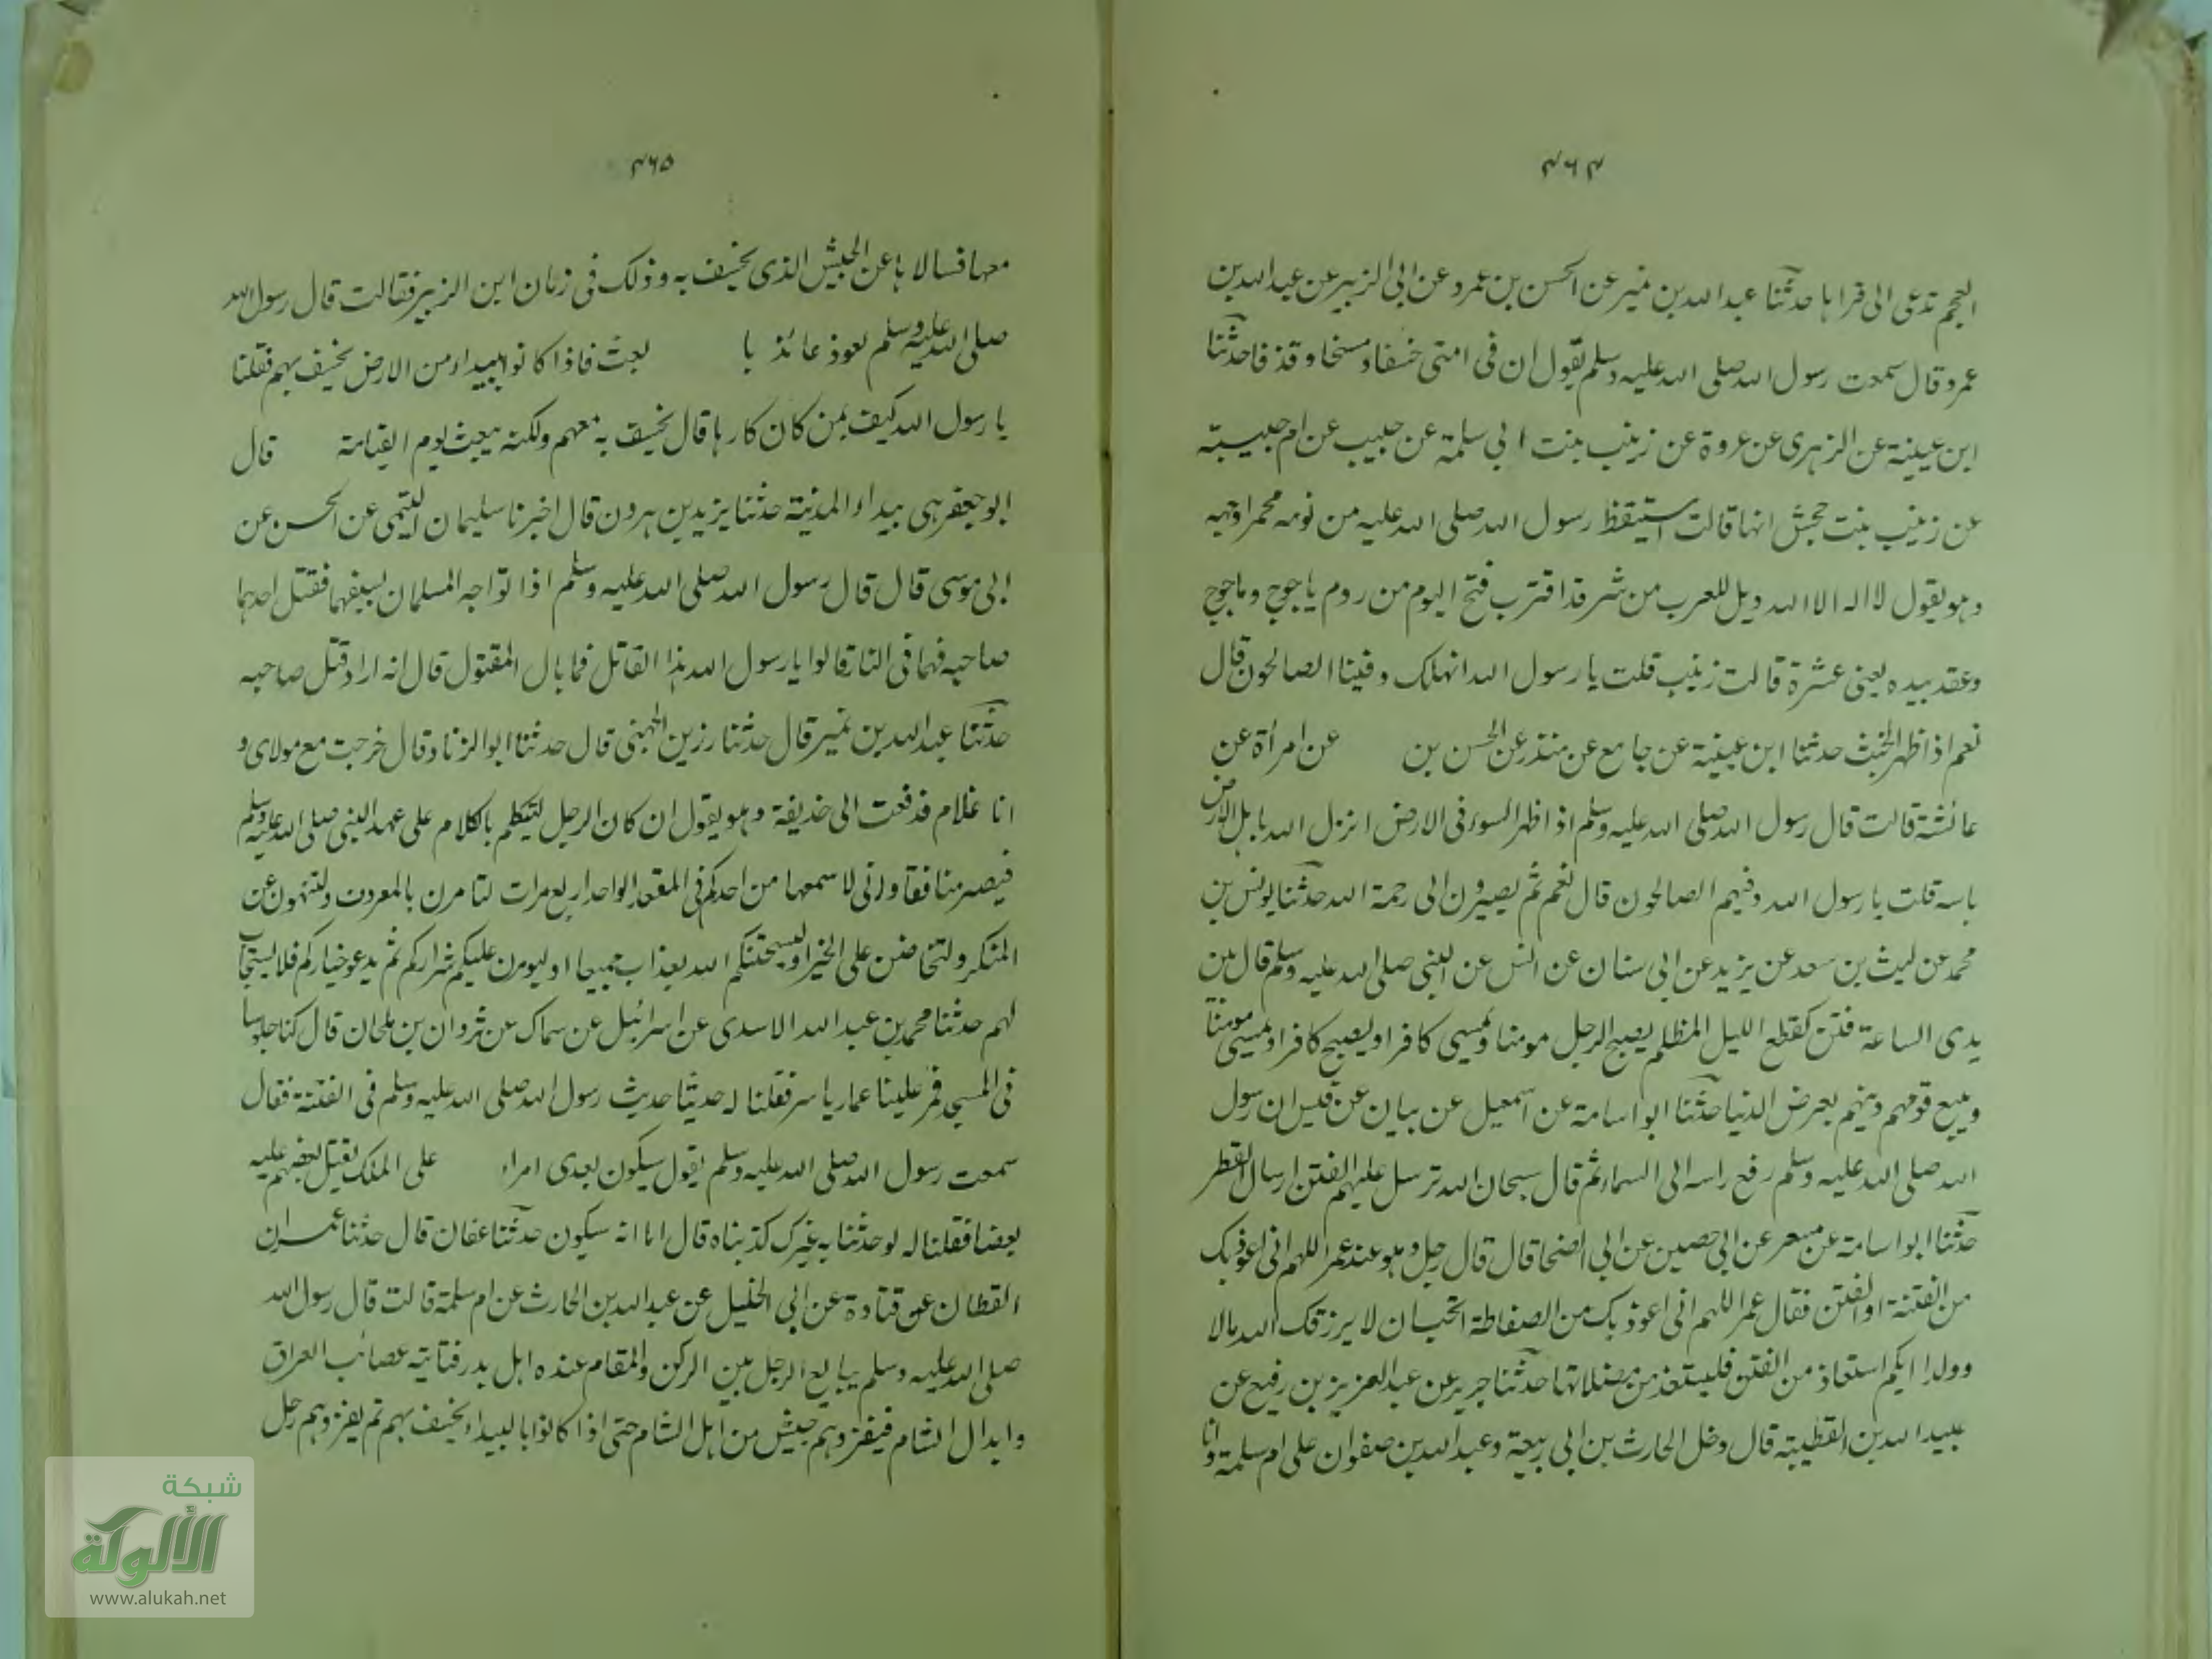 ۴۶۴
العجم تدعى الى قراها حدثنا عبد الله بن نمير عن الحسن بن عمرو عن ابى الزبير عن عبد الله بن
عمرو قال سمعت رسول الله صلى الله عليه وسلم يقول ان فى امتى خسفا ومسخا وقذفا حدثنا
ابن عيينة عن الزهرى عن عروة عن زينب بنت ابى سلمة عن حبيب عن ام حبيبة
عن زينب بنت جحش انها قالت استيقظ رسول الله صلى الله عليه من نومه محمرا وجهه
وهو يقول لا اله الا الله ويل للعرب من شر قد اقترب فتح اليوم من روم ياجوج وماجوج
وعقد بيده يعنى عشرة قالت زينب قلت يا رسول الله انهلك وفينا الصالحون قال
نعم اذا ظهر الخبث حدثنا ابن عيينة عن جامع عن منذر عن الحسن بن عن امرأة عن
عائشة قالت قال رسول الله صلى الله عليه وسلم اذا ظهر السوء فى الارض انزل الله باهل الارض
باسه قلت يا رسول الله وفيهم الصالحون قال نعم ثم يصيرون الى رحمة الله حدثنا يونس بن
محمد عن ليث بن سعد عن يزيد عن ابى سنان عن انس عن النبى صلى الله عليه وسلم قال بين
يدى الساعة فتن كقطع الليل المظلم يصبح الرجل مومنا ويمسى كافرا ويصبح كافرا ويمسى مومنا
ويبيع قومهم دينهم بعرض الدنيا حدثنا ابو اسامة عن اسمعيل عن بيان عن قيس ان رسول
الله صلى الله عليه وسلم رفع راسه الى السماء ثم قال سبحان الله ترسل عليهم الفتن ارسال القطر
حدثنا ابو اسامة عن مسعر عن ابى حصين عن ابى اضحا قال قال رجل وهو عند عمر اللهم انى اعوذ بك
من الفتنة او الفتن فقال عمر اللهم انى اعوذ بك من الصفاطة اتحب ان لا يرزقك الله مالا
وولدا ايكم استعاذ من الفتن فليستعذ من مضلاتها حدثنا جرير عن عبد العزيز بن رفيع عن
عبيد الله بن القطيبة قال دخل الحارث بن ابى ربيعة وعبد الله بن صفوان على ام سلمة وانا
۴۶۵
معها فسالاها عن الجيش الذى يخسف به وذلك فى زمان ابن الزبير فقالت قال رسول الله
صلى الله عليه وسلم يعوذ عائذ با يبعث فاذا كانوا ببيداء من الارض يخسف بهم فقلنا
يا رسول الله كيف بمن كان كارها قال يخسف به معهم ولكنه يبعث يوم القيامة قال
ابو جعفر هى بيداء المدينة حدثنا يزيد بن هرون قال اخبرنا سليمان التيمى عن الحسن عن
ابى موسى قال قال رسول الله صلى الله عليه وسلم اذا تواجه المسلمان بسيفهما فقتل احدهما
صاحبه فهما فى النار قالوا يا رسول الله هذا القاتل فما بال المقتول قال انه اراد قتل صاحبه
حدثنا عبد الله بن نمير قال حدثنا رزين الجهنى قال حدثنا ابو الزناد قال خرجت مع مولاى و
انا غلام فدفعت الى حذيفة وهو يقول ان كان الرجل ليتكلم بالكلام على عهد النبى صلى الله عليه وسلم
فيصير منافقا وانى لاسمعها من احدكم فى المقعد الواحد اربع مرات لتامرن بالمعروف ولتنهون عن
المنكر ولتحاضن على الخير او ليسحتنكم الله بعذاب جميعا او ليومرن عليكم شراركم ثم يدعو خياركم فلا يستجاب
لهم حدثنا محمد بن عبد الله الاسدى عن اسرائيل عن سماك عن ثروان بن ملحان قال كنا جلوسا
فى المسجد فمر علينا عمار ياسر فقلنا له حدثنا حديث رسول الله صلى الله عليه وسلم فى الفتنة فقال
سمعت رسول الله صلى الله عليه وسلم يقول سيكون بعدى امراء على الملك يقتل بعضهم عليه
بعضا فقلنا له لو حدثنا به غيرك كذبناه قال اما انه سيكون حدثنا عفان قال حدثنا عمران
القطان عن قتادة عن ابى الخليل عن عبد الله بن الحارث عن ام سلمة قالت قال رسول الله
صلى الله عليه وسلم يبايع الرجل بين الركن والمقام عنده اهل بدر فتاتيه عصائب العراق
وابدال الشام فيغزوهم جيش من اهل الشام حتى اذا كانوا بالبيداء يخسف بهم ثم يغزوهم رجل
شبكة
الألوكة
www.alukah.net